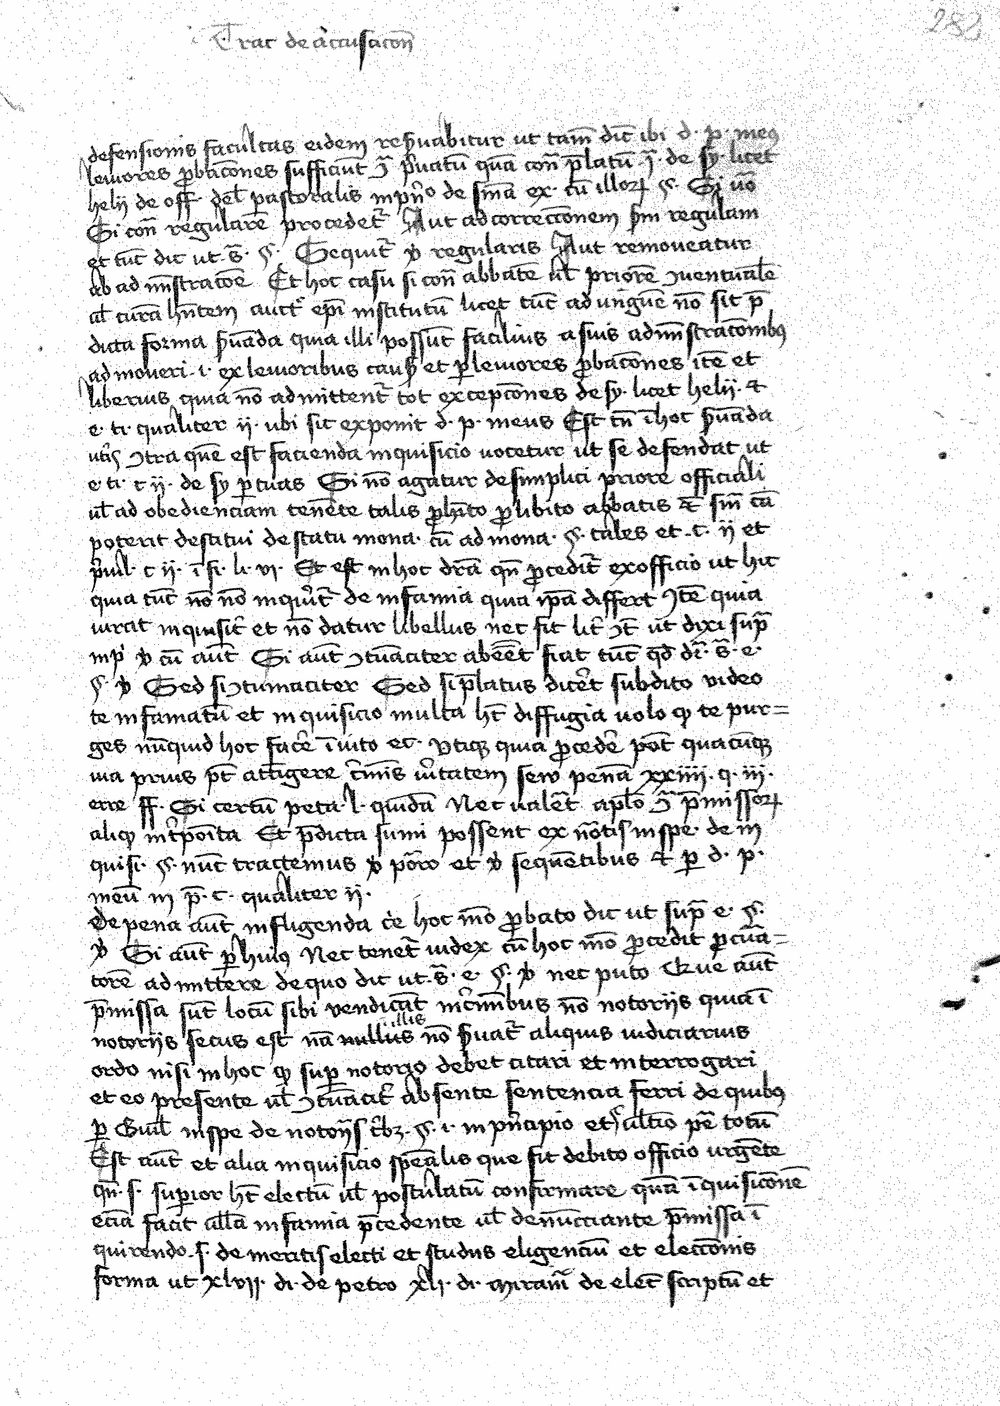 Trac de accusacōn
282
defensionis facultas eidem reseruabitur ut tam̄ dic̄ ibi d. p. meus
leuiores ꝓbacōnes sufficiūt ꝯ̄ pͥuatū quā con̄ p̄latū ī. de sy. licet
helii de off. del̄ pastoralis in pn̄o de sm̄a ex. cū illoꝝ §. Si uō
Si con̄ regularē procedet̄ Aut ad correccōnem scd̄m regulam
et tūc dic ut. s̄. §. Sequit̄ ꝟ regularis Aut remoueatur
ab ad mīstracōe Et hoc casu si con̄ abbatē ul̄ priorē ꝯuentualē
ul̄ curā hn̄tem auct̄ ep̄i institutū licet tūc ad unguē nō sit p̄
dicta forma ẜuāda quia illi possūt facilius a suis admīstracōnibꝰ
ad moueri. i. ex leuioribus causis et ꝑ leuiores ꝓbacōnes itē et
liberius quia nō admittent̄ tot excepcōnes de sy. licet helii. ⁊
e. ti. qualiter ii. ubi sic exponit d. p. meus Est tn̄ ī hoc ẜuāda
ut is ꝯtra quē est facienda inquisicio uocetur ut se defendat ut
e. ti. c ii. de sy ꝑ tuas Si nō agatur de simplici priore officiali
ul̄ ad obedienciam tenēte talis ꝓ libito abbatis ⁊ sin̄ cā
poterit destitui de statu mona. cū ad mona. §. tales et. c. ii et
pͥuil. c ii. ī fi. li. vi. Et est in hoc dr̄a qn̄ ꝓcedit̄ ex officio ut hic
quia tūc nō nō inquirit̄ de infamia quia ipā differt Itē quia
iurat inquisit̄ et nō datur libellus nec fit lit̄ ꝯt̄ ut dixi sup̄
in p̄ ꝟ cū aūt Si aūt ꝯtūaciter abeēt fiat tūc qd̄ dr̄. s̄. e.
§. ꝟ Sed si ꝯtumaciter Sed si p̄latus dicer̄t subdito video
te infamatū et inquisicio multa ht̄ diffugia uolo ꝙ te pur=
ges nūnquid hoc facer̄ ī uito ec. Vtiqꝫ quia ꝓceder̄ pōt quacūqꝫ
uia prius pt̄ attīgere cͥmīs ūitatem seu penā xxiiii. q. iii.
erre ff. Si certū peta. l. quidā Nec ualet̄ aplo ꝯ̄ p̄missoꝝ
aliqͦ int̄poīta Et p̄dicta sumi possent ex nōtis in spe. de in
quisi. §. nūc tractemus ꝟ porro et ꝟ sequētibus ⁊ ꝑ d. p.
meū in p̄. c. qualiter ii.
De pena aūt infligenda c̄e hoc mō ꝓbato dic ut sup̄ e. §.
ꝟ Si aūt ꝑ huiꝰ Nec tenet̄ iudex cū hoc mō ꝓcedit ꝓcūa=
torē admittere de quo dic ut. s̄. e. §. ꝟ nec puto Que aūt
p̄missa sūt locū sibi vendicāt in cͥmībus nō notoriis quia ī
notoriis secus est nā nullus illis nō ẜuat̄ aliquis iudiciarius
ordo nisi in hoc ꝙ sup̄ notorio debet citari et interrogari
et eo presente ul̄ ꝯtūacit̄ absente sentencia ferri de quibꝰ
ꝑ Guil̄ in spe de notoriis cͥbꝫ. §. i. in pn̄cipio et §. ultīo pē totū
Est aūt et alia inquisicio spēalis que fit debito officio urgēte
qn̄. s. supior ht̄ electū ul̄ postulatū confirmare quā īquisicōnē
eciā facit ul̄la infamia p̄cedente ul̄ denūcciante p̄missa ī
quirendo. s. de meritis electi et studiis eligenciū et eleccōnis
forma ut xlvii. di. de petro xli. di. miram̄ de elec̄ scriptū et